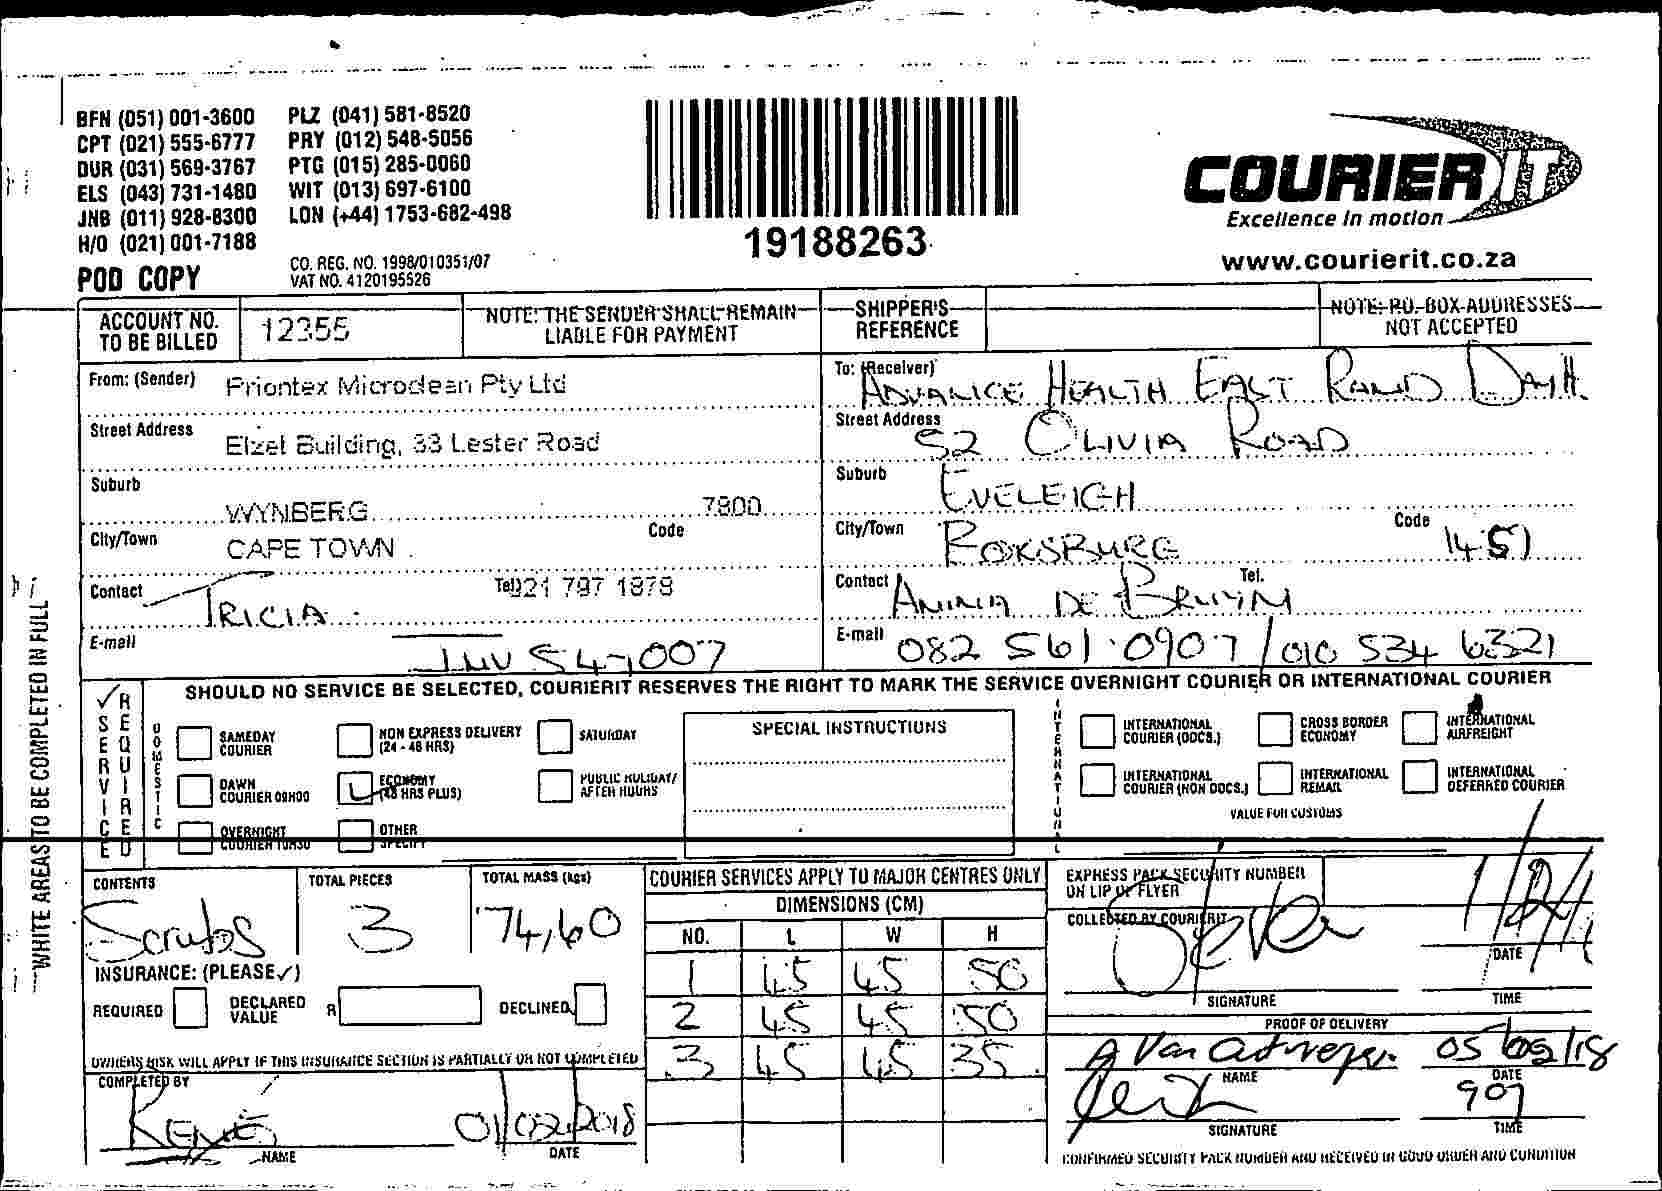 BFN (051) 001-3600 PLZ (041) 581-8520
CPT (021) 555-6777 PRY (012) 548-5056
DUR (031) 569-3767 PTG (015) 285-0060
ELS (043) 731-1480 WIT (013) 697-6100
JNB (011) 928-8300 LON (+44) 1753-682-498
H/O (021) 001-7188
POD COPY
CO. REG. NO. 1998/010351/07
VAT NO. 4120195526
19188263
COURIER IT
Excellence in motion
www.courierit.co.za
ACCOUNT NO. TO BE BILLED 12355
NOTE: THE SENDER SHALL REMAIN LIABLE FOR PAYMENT
SHIPPER'S REFERENCE
NOTE: P.O. BOX ADDRESSES NOT ACCEPTED
From: (Sender) Priontex Microclean Pty Ltd
Street Address Elzet Building, 33 Lester Road
Suburb WYNBERG 7800
City/Town CAPE TOWN Code
Contact TRICIA Tel 021 797 1878
E-mail INV 547007
To: (Receiver) ADVANCE HEALTH EAST RAND DAY H.
Street Address 52 OLIVIA ROAD
Suburb EVELEIGH
City/Town BOKSBURG Code 1459
Contact ANINA DE BRUYN Tel.
E-mail 082 561 0907 / 010 534 6321
SHOULD NO SERVICE BE SELECTED, COURIERIT RESERVES THE RIGHT TO MARK THE SERVICE OVERNIGHT COURIER OR INTERNATIONAL COURIER
WHITE AREAS TO BE COMPLETED IN FULL
✓ SERVICE REQUIRED
DOMESTIC
SAMEDAY COURIER
NON EXPRESS DELIVERY (24 - 48 HRS)
SATURDAY
DAWN COURIER 09H00
ECONOMY (48 HRS PLUS)
PUBLIC HOLIDAY/ AFTER HOURS
OVERNIGHT COURIER 10H30
OTHER SPECIFY
SPECIAL INSTRUCTIONS
INTERNATIONAL
INTERNATIONAL COURIER (DOCS.)
CROSS BORDER ECONOMY
INTERNATIONAL AIRFREIGHT
INTERNATIONAL COURIER (NON DOCS.)
INTERNATIONAL REMAIL
INTERNATIONAL DEFERRED COURIER
VALUE FOR CUSTOMS
CONTENTS Scrubs
TOTAL PIECES 3
TOTAL MASS (kgs) 74,60
INSURANCE: (PLEASE ✓)
REQUIRED
DECLARED VALUE R
DECLINED
OWNERS RISK WILL APPLY IF THIS INSURANCE SECTION IS PARTIALLY OR NOT COMPLETED
COMPLETED BY
RENÉ 01/02/2018
NAME DATE
COURIER SERVICES APPLY TO MAJOR CENTRES ONLY
DIMENSIONS (CM)
NO. L W H
1 45 45 50
2 45 45 50
3 45 45 35
EXPRESS PACK SECURITY NUMBER ON LIP OF FLYER
COLLECTED BY COURIERIT
DATE
SIGNATURE TIME
PROOF OF DELIVERY
A Van 05/02/18
NAME DATE
907
SIGNATURE TIME
CONFIRMED SECURITY PACK NUMBER AND RECEIVED IN GOOD ORDER AND CONDITION